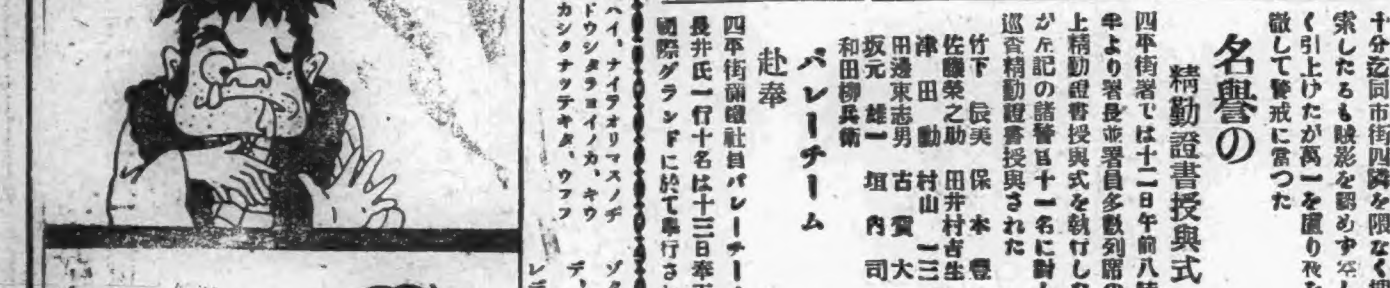 十分迄同市街四隣を隈なく捜
索したるも賊影を認めず空し
く引上げたが萬一を慮り夜を
徹して警戒に當つた
名譽の
精勤證書授與式
四平街署では十二日午前八時
半より署長並署員多數列席の
上精勤證書授與式を執行した
が左記の諸警官十一名に對し
巡査精勤證書授與された
竹下 辰美 保本 豊
佐藤榮之助 田井村吉生
津田 勳 村山 一三
田邊東志男 古賀 大
坂元 雄一 垣内 司
和田柳兵衛
バレーチーム
赴奉
四平街滿鐵社員バレーチー
長井氏一行十名は十三日奉天
國際グランドに於て擧行さ
ハイ、ナイテオリマスノデ
ドウシタラヨイノカ、キウ
カシタナツテキタ、ウフフ